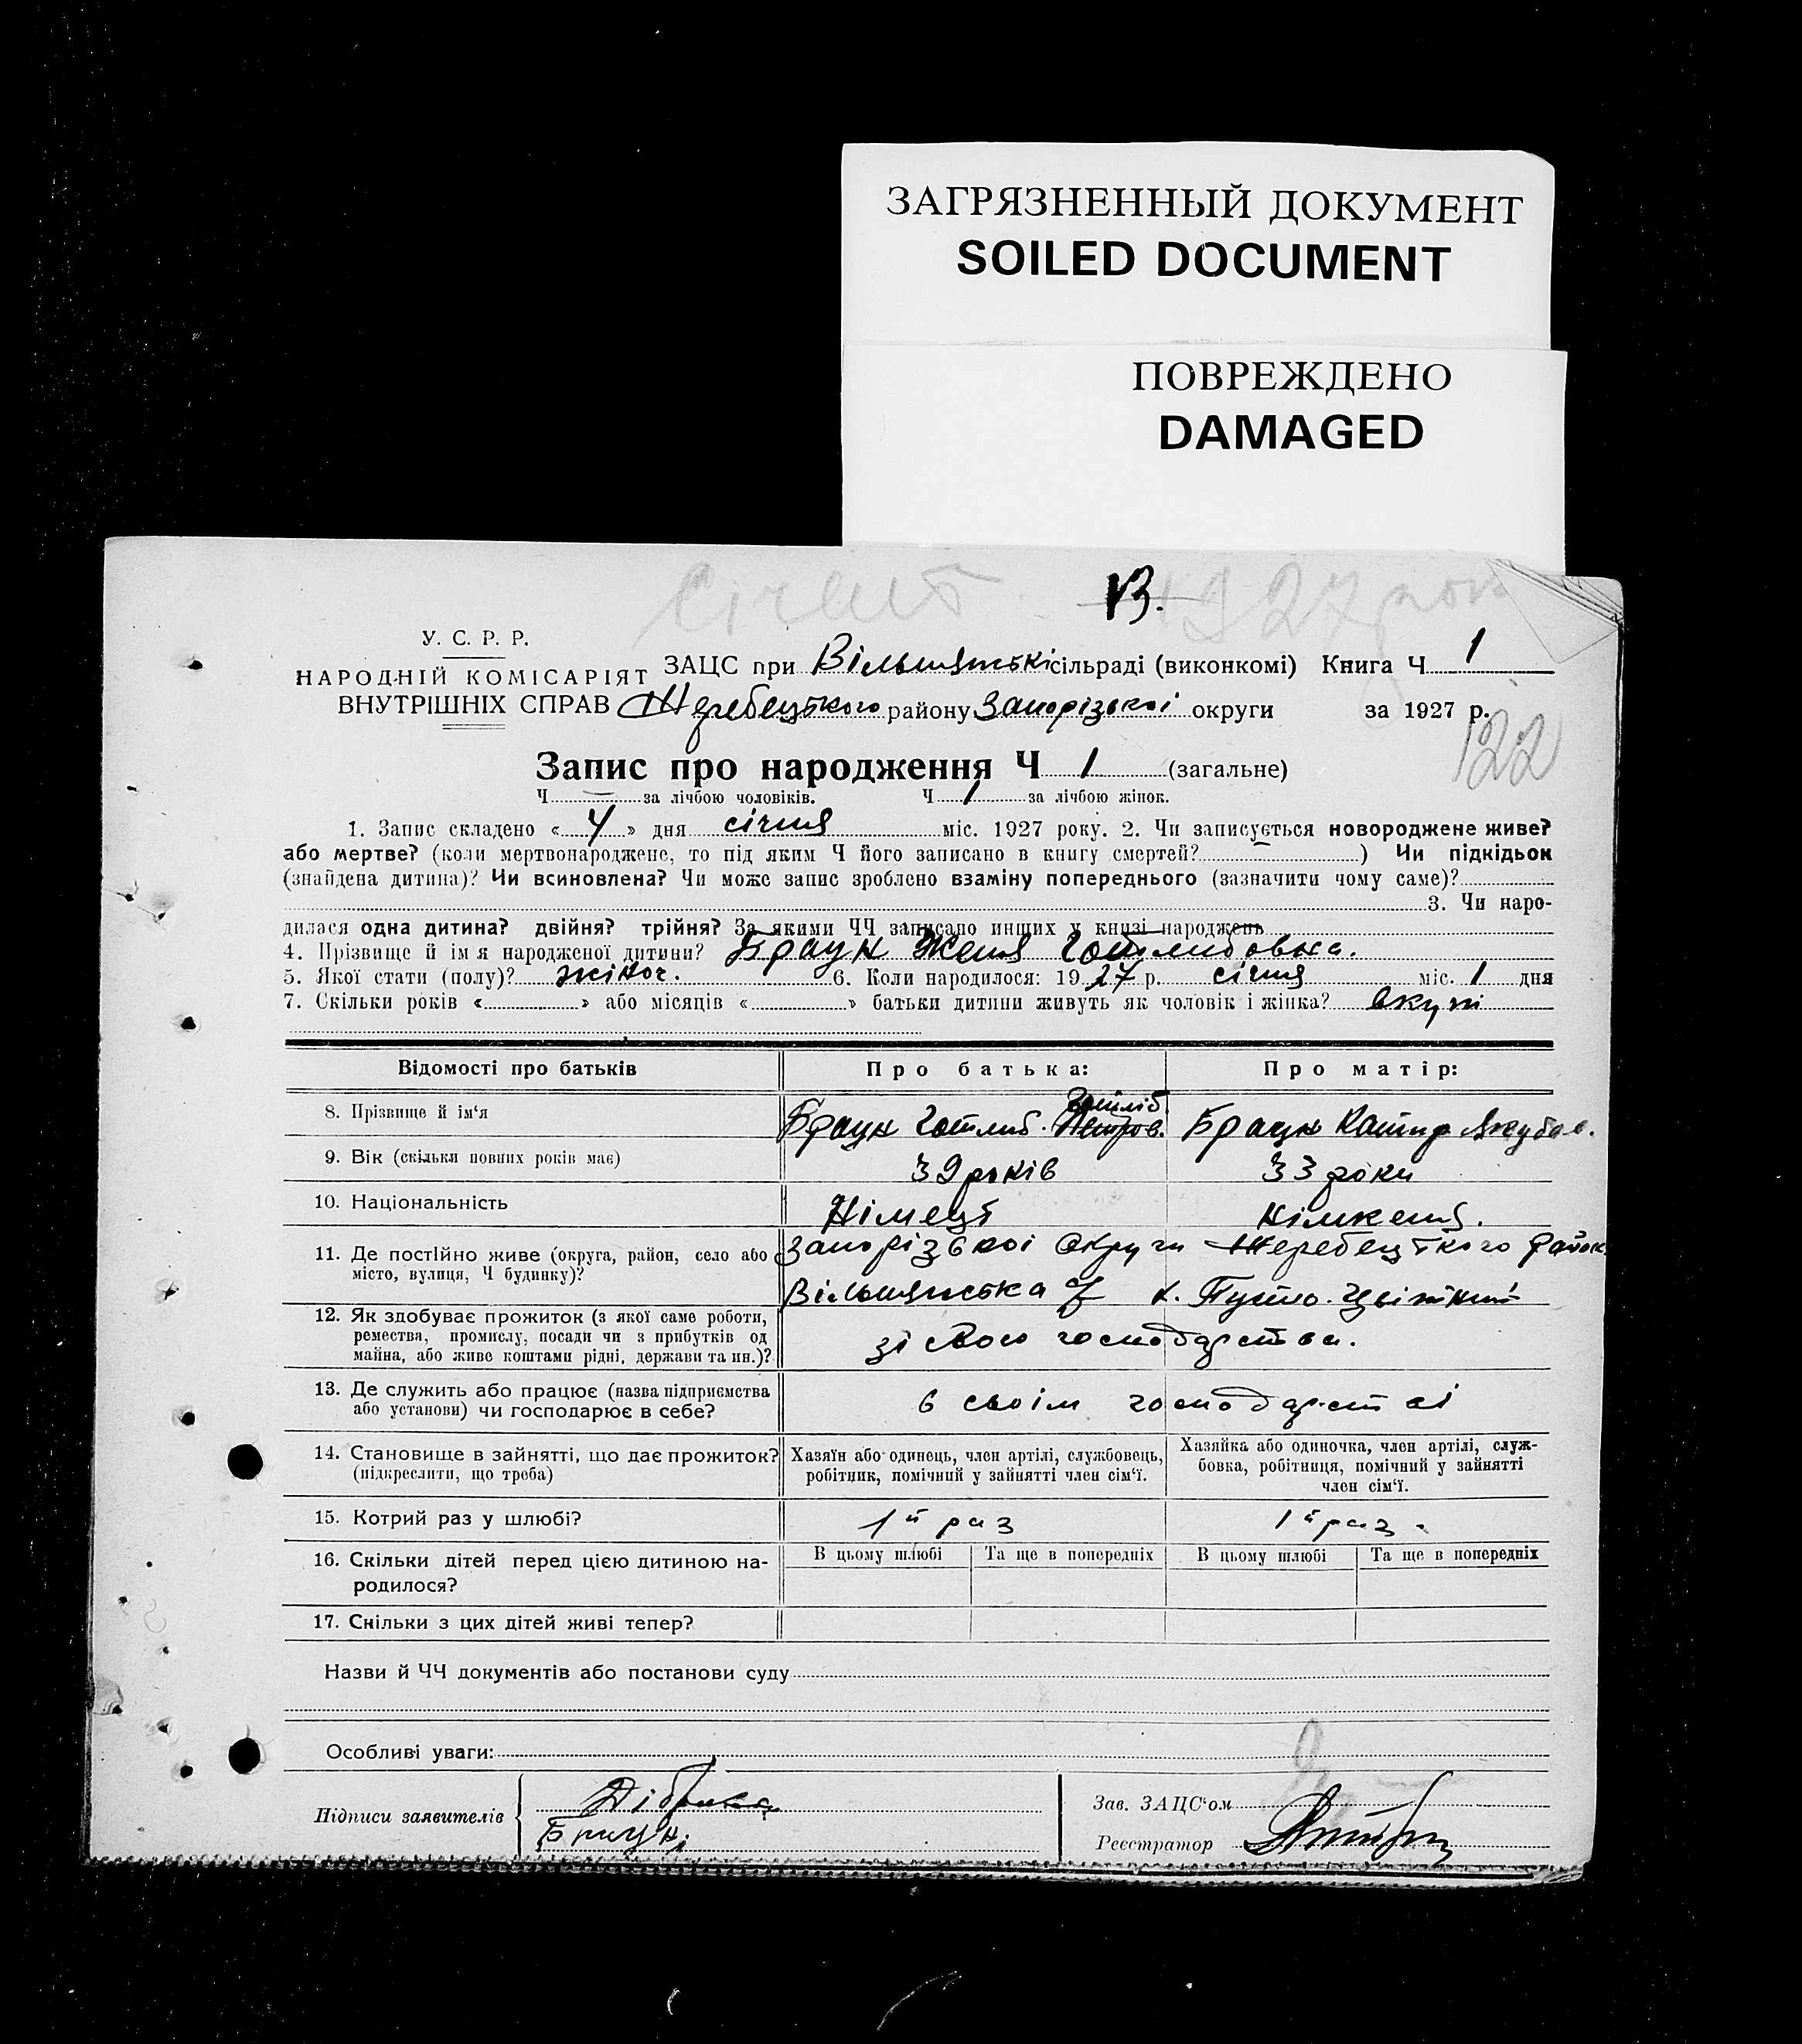 ЗАГРЯЗНЕННЫЙ ДОКУМЕНТ
SOILED DOCUMENT
ПОВРЕЖДЕНО
DAMAGED
січень 1927 рок
В.
У. С. Р. Р.
НАРОДНІЙ КОМІСАРІЯТ
ВНУТРІШНІХ СПРАВ
ЗАЦС при Вільшянські сільраді (виконкомі) Книга Ч 1
Жеребецького району Запорізької округи за 1927 р.
122
Запис про народження Ч 1 (загальне)
Ч — за лічбою чоловіків. Ч 1 за лічбою жінок.
1. Запис складено « 4 » дня січня міс. 1927 року. 2. Чи записується новороджене живе?
або мертве? (коли мертвонароджене, то під яким Ч його записано в книгу смертей? — ) Чи підкідьок
(знайдена дитина)? Чи всиновлена? Чи може запис зроблено взаміну попереднього (зазначити чому саме)?
3. Чи наро-
дилася одна дитина? двійня? трійня? За якими ЧЧ записано инших у книзі народжень
4. Прізвище й ім я народженої дитини? Браун Женя Готлибовна.
5. Якої стати (полу)? жіноч. 6. Коли народилося: 1927 р. січня міс. 1 дня
7. Скільки років « » або місяців « » батьки дитини живуть як чоловік і жінка? вкупі
Відомості про батьків Про батька: Про матір:
8. Прізвище й ім‘я Браун Готлиб. Петров. Готліб. Браун Катир Якубов.
9. Вік (скільки повних років має) 39 років 33 роки
10. Національність Німець німкеня.
11. Де постійно живе (округа, район, село або місто, вулиця, Ч будинку)? Запорізької округи Жеребецького район
Вільшянська к. Пусто-Цвітний
12. Як здобуває прожиток (з якої саме роботи,
ремества, промислу, посади чи з прибутків од
майна, або живе коштами рідні, держави та ин.)? зі свого господарства.
13. Де служить або працює (назва підприємства
або установи) чи господарює в себе? в своїм господарстві
14. Становище в зайнятті, що дає прожиток?
(підкреслити, що треба)
Хазяїн або одинець, член артілі, службовець,
робітник, помічний у зайнятті член сім‘ї.
Хазяйка або одиночка, член артілі, служ-
бовка, робітниця, помічний у зайнятті
член сім‘ї.
15. Котрий раз у шлюбі? 1й раз 1й раз.
16. Скільки дітей перед цією дитиною на-
родилося?
В цьому шлюбі Та ще в попередніх В цьому шлюбі Та ще в попередніх
17. Скільки з цих дітей живі тепер?
Назви й ЧЧ документів або постанови суду
Особливі уваги:
Підписи заявителів
Браун
Зав. ЗАЦС‘ом
Реєстратор